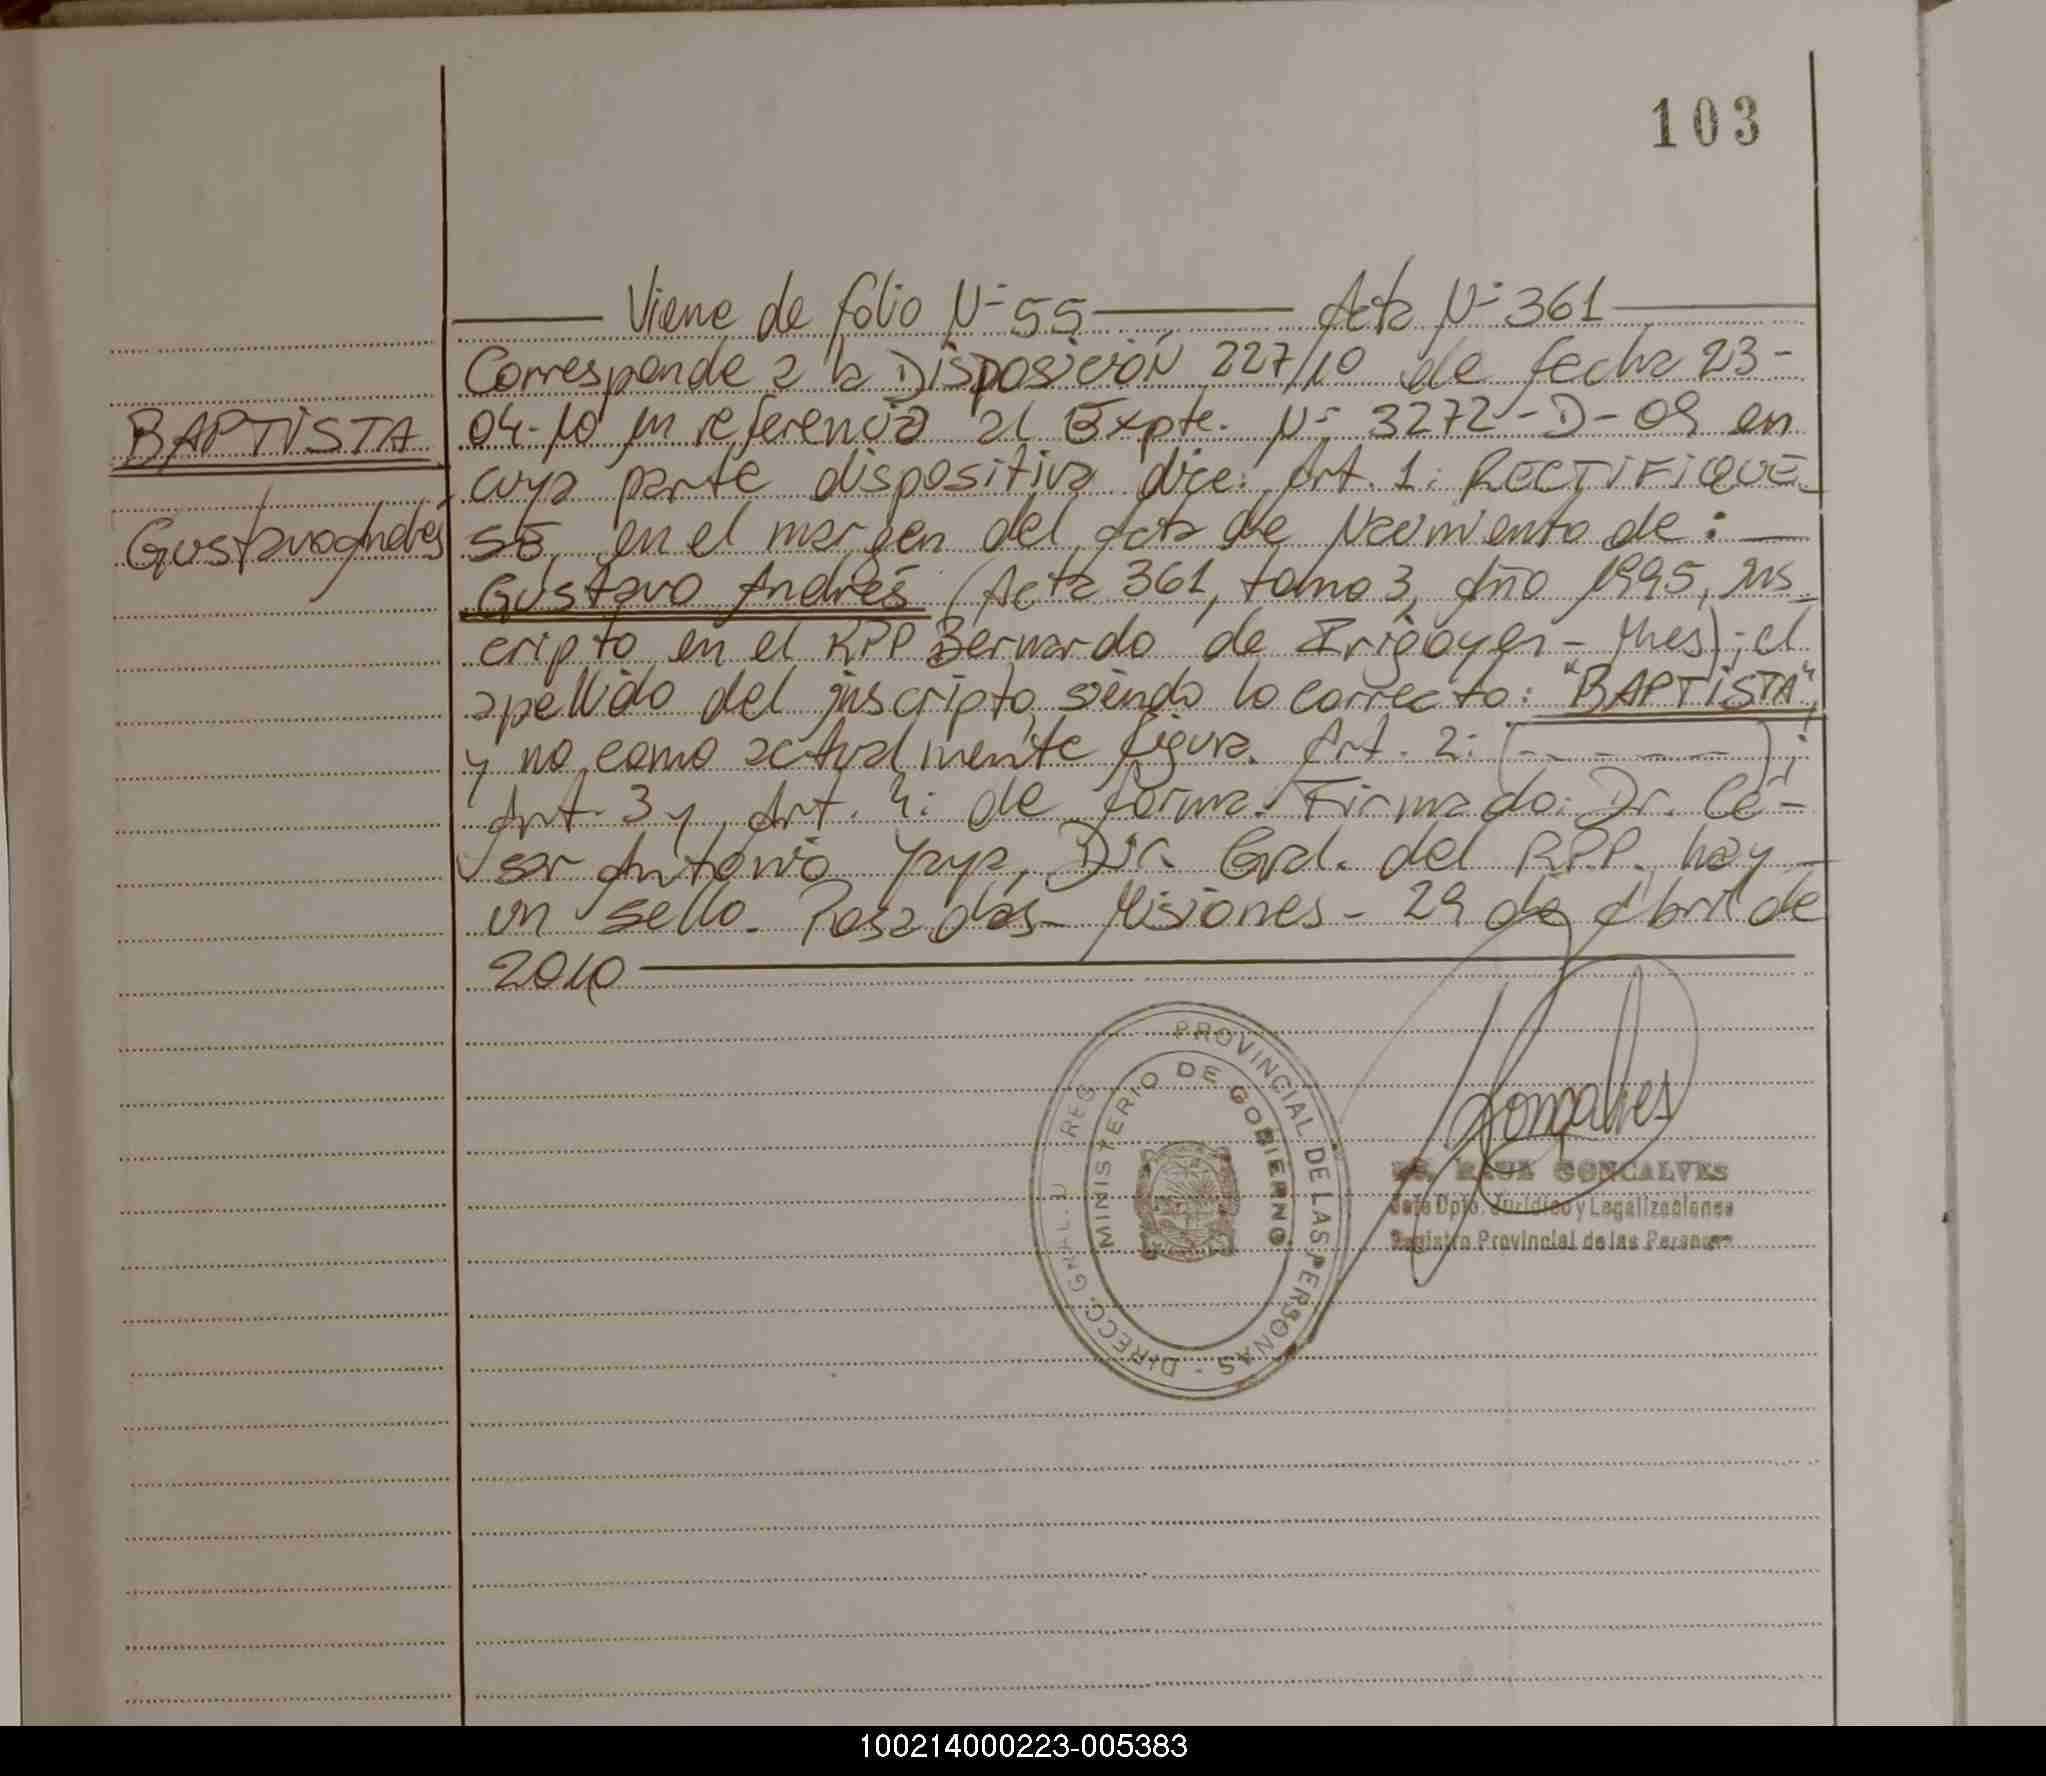 103
Viene de folio Nº 55 Acta Nº 361
Corresponde a la Disposición 227/10 de fecha 23-
BAPTISTA
04-10 en referencia al Expte. Nº 3272-D-09 en
cuya parte dispositiva dice: Art. 1: RECTIFIQUE-
Gustavo Andrés
SE, en el margen del Acta de Nacimiento de: —
Gustavo Andrés (Acta 361, tomo 3, Año 1995, ins-
cripto en el RPP Bernardo de Irigoyen - Mnes); el
apellido del inscripto, siendo lo correcto: "BAPTISTA",
y no como actualmente figura. Art. 2: (- - - - - -);
Art. 3 y Art. 4: de forma. Firmado: Dr. Cé-
sar Antonio Yaya, Dir. Gral. del RPP. hay —
un sello. Posadas - Misiones - 29 de Abril de
2010
DIRECC. GNAL. D REG PROVINCIAL DE LAS PERSONAS -
MINISTERIO DE GOBIERNO
Gonçalves
RAUL GONCALVES
Jefe Dpto. Jurídico y Legalizaciones
Registro Provincial de las Personas
100214000223-005383